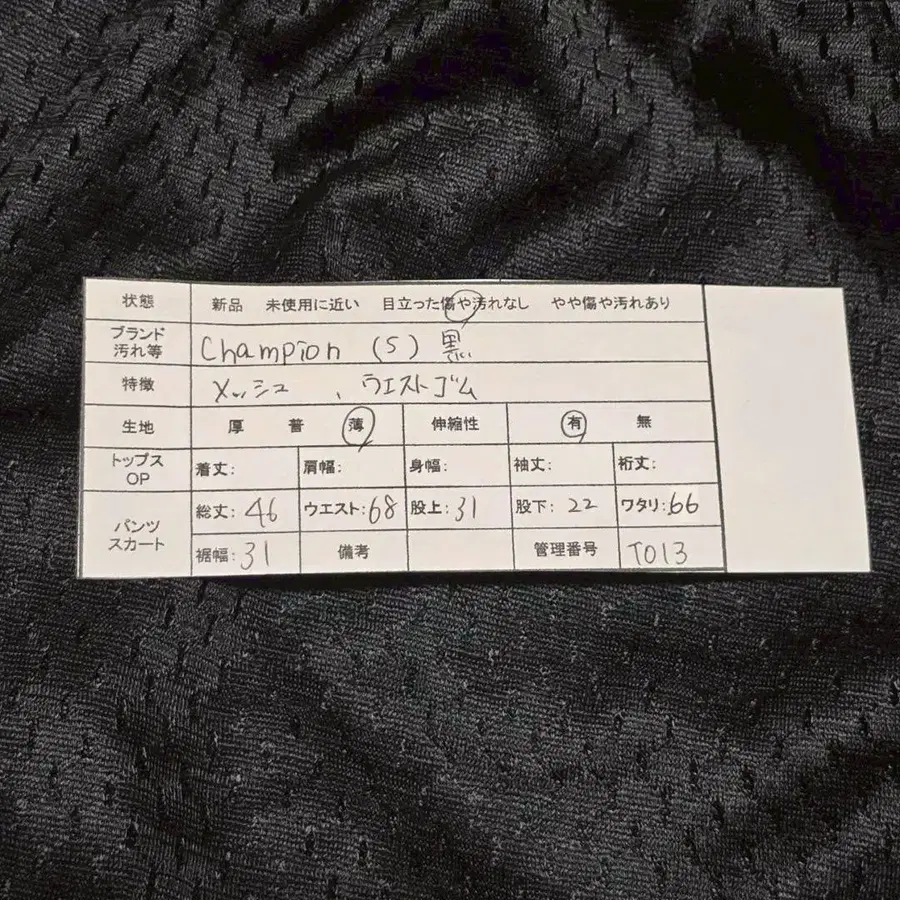 状態 新品 未使用に近い 目立った傷や汚れなし やや傷や汚れあり
ブランド
汚れ等 Champion (S) 黒
特徴 メッシュ 、ウエストゴム
生地 厚 普 薄 伸縮性 有 無
トップス
OP 着丈: 肩幅: 身幅: 袖丈: 裄丈:
パンツ
スカート 総丈: 46 ウエスト:68 股上:31 股下: 22 ワタリ:66
裾幅: 31 備考 管理番号 T013